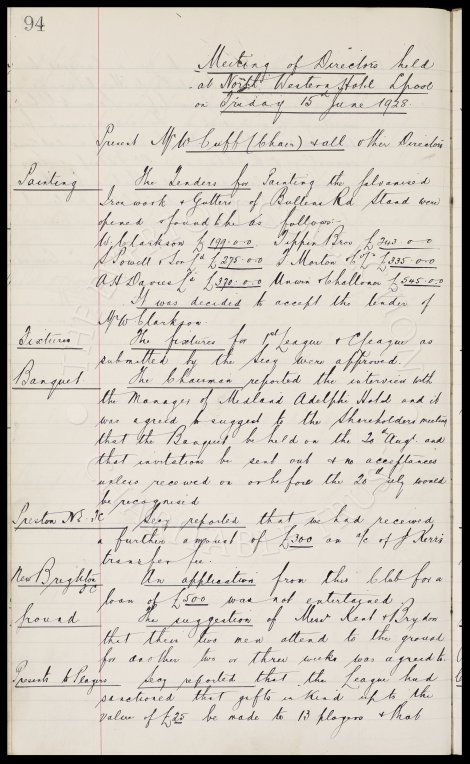 94
Meeting of Directors held
at North Western Hotel Lpool
on Friday 15th June 1928.
Present Mr W Cuff (Chair) & all other Directors
Painting
The Tenders for Painting the Galvanised
Iron work & Gutters of Bullens Rd Stand were
opened & found to be as follows:-
W. Clarkson £199-0-0 Tippin Bros £243-0-0
S Powell & Son Ld £275-0-0 T Morton & Co Ld £335-0-0
A H Davies Ld £370-0-0 Unwin & Challoner £545-0-0
It was decided to accept the tender of
Mr W Clarkson
Fixtures
The fixtures for 1st League & C League as
submitted by the Secy were approved.
Banquet
The Chairman reported the interview with
the Manager of Midland Adelphi Hotel and it
was agreed to suggest to the Shareholders meeting
that the Banquet be held on the 20th Augt. and
that invitations be sent out & no acceptances
unless received on or before the 20th July would
be recognised
Preston N.E. FC
Secy reported that we had received
a further amount of £300 on a/c of J Kerr's
transfer fee.
New Brighton FC
An application from this Club for a
loan of £500 was not entertained
Ground
The suggestion of Messrs Kent & Brydon
that their two men attend to the ground
for another two or three weeks was agreed to.
Presents to Players
Secy reported that the League had
sanctioned that gifts in kind up to the
value of £25 be made to 13 players & that